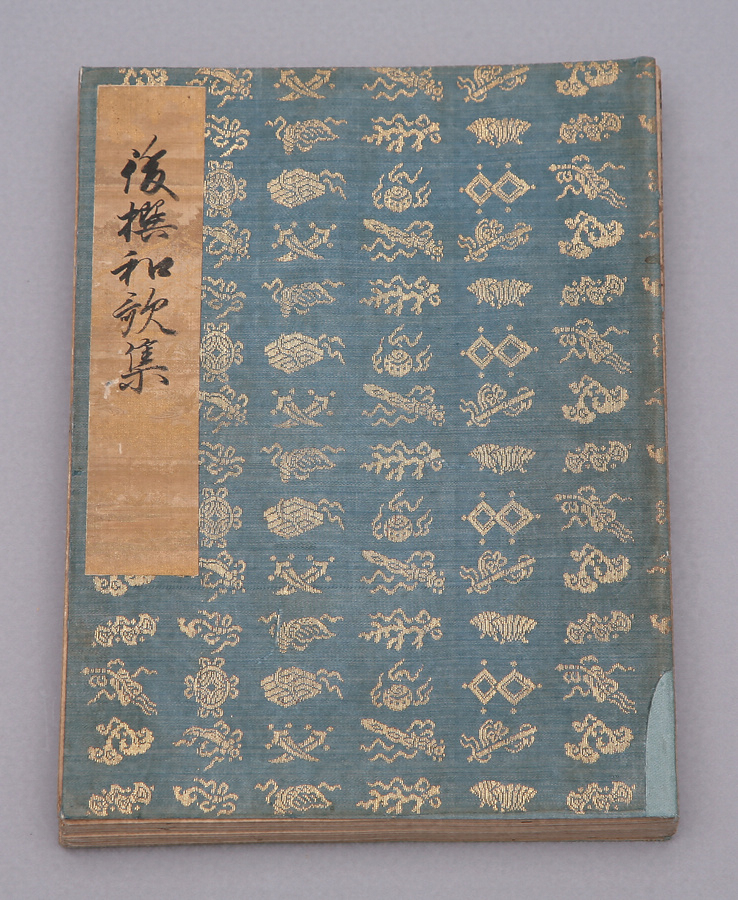 後撰和歌集